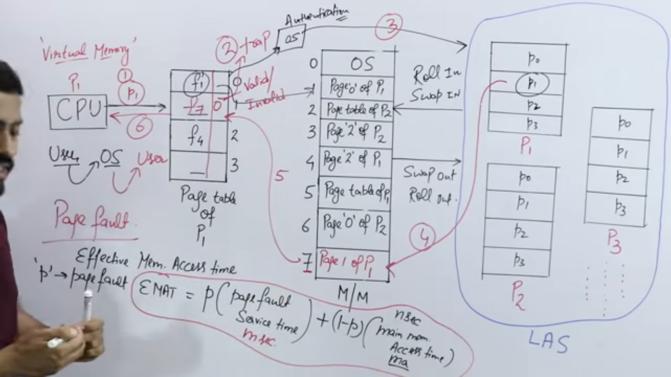 'Virtual Memory'
P1
CPU
1
P1
6
User OS User
Page fault
2 trap
Authentication
OS
3
f1
f7 0
f4 2
3
Valid/
Invalid
Page table
of
P1
5
0 OS
1 Page'0' of P1
2 Page table of P2
3 Page '2' of P2
4 Page '2' of P1
5 Page table of P1
6 Page '0' of P2
7 Page 1 of P1
M/M
Roll In
Swap IN
Swap Out
Roll Out.
4
P0
P1
P2
P3
P1
P0
P1
P2
P3
P2
P0
P1
P2
P3
P3
LAS
Effective Mem. Access time
'p' → page fault
EMAT = p (page fault
Service time) + (1-p) (main mem.
Access time)
msec
nsec
ma